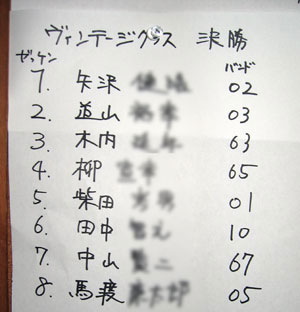 ヴィンテージクラス 決勝
ゼッケン バンド
1. 矢沢 02
2. 道山 03
3. 木内 63
4. 柳 65
5. 柴田 01
6. 田中 10
7. 中山 67
8. 馬渡 05